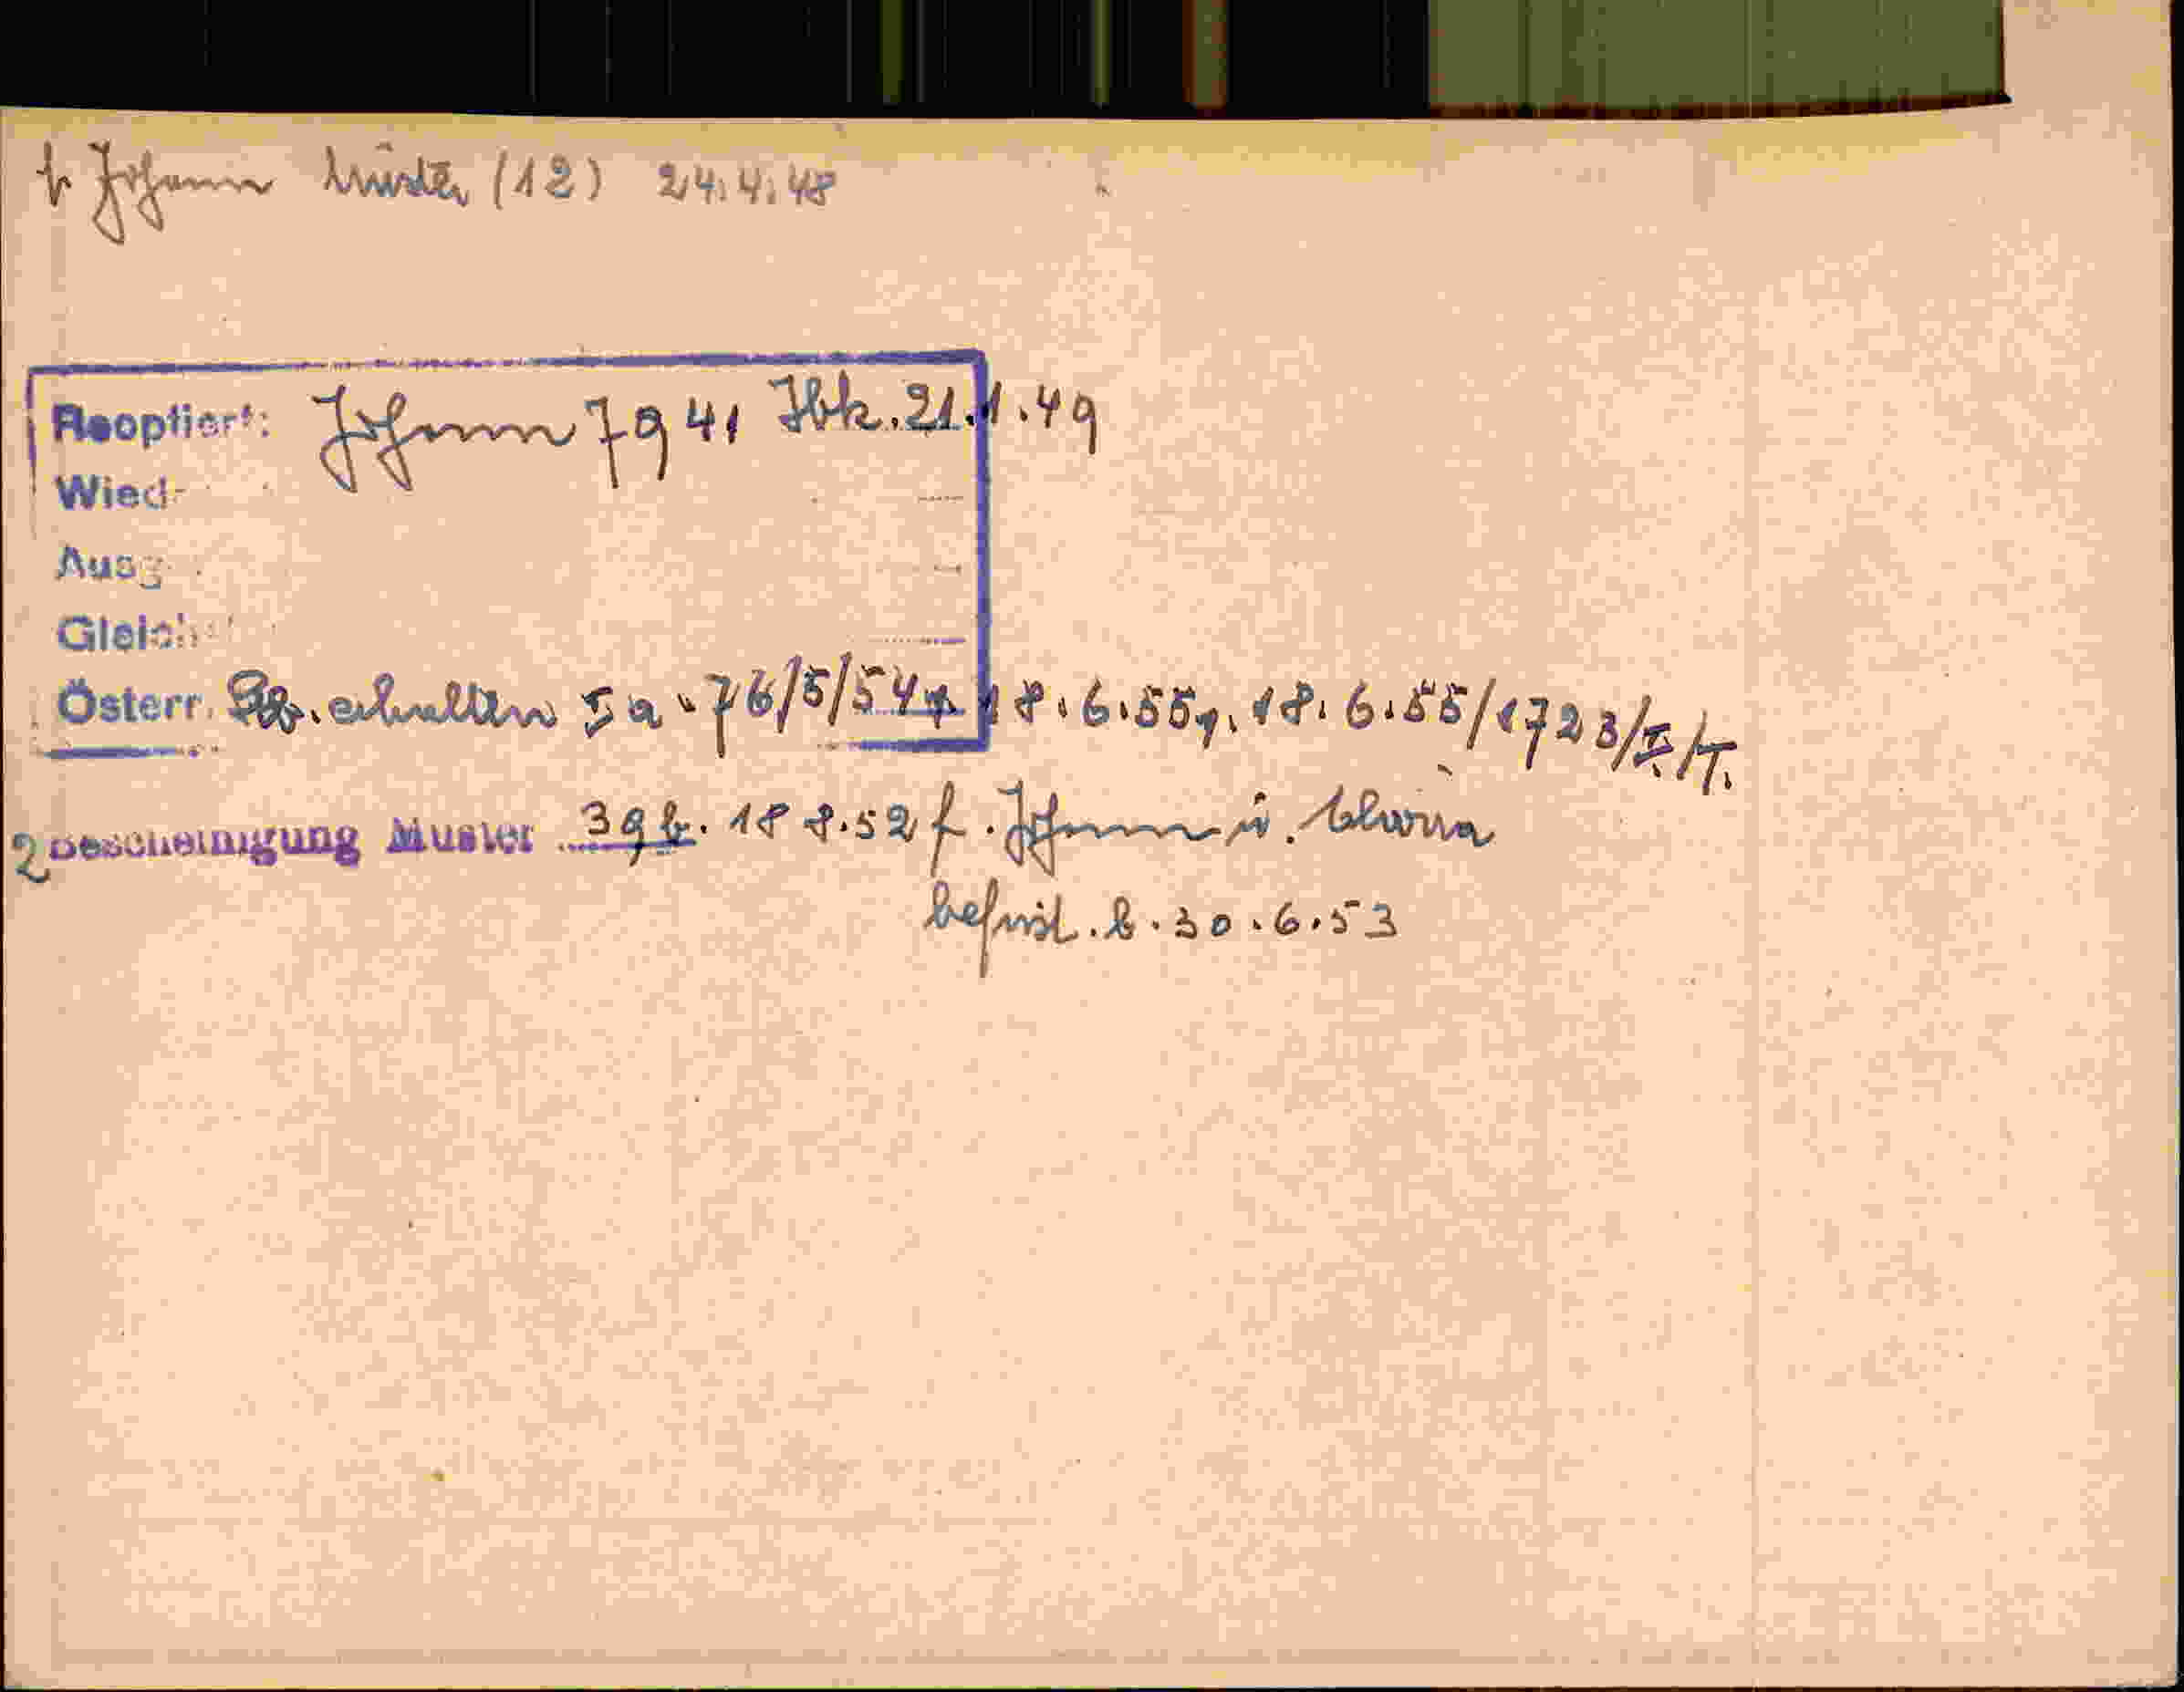 f. Johann Muster (12) 24.4.48
Reoptiert: Johann Jg 41 Ibk. 21.1.49
Wied
Ausg
Gleich
Österr. erhalten 5a-76/5/54 18.6.55, 18.6.55/1723/I/T.
2 Bescheinigung Muster 39b. 18.8.52 f. Johann u. Maria
befrist. b. 30.6.53